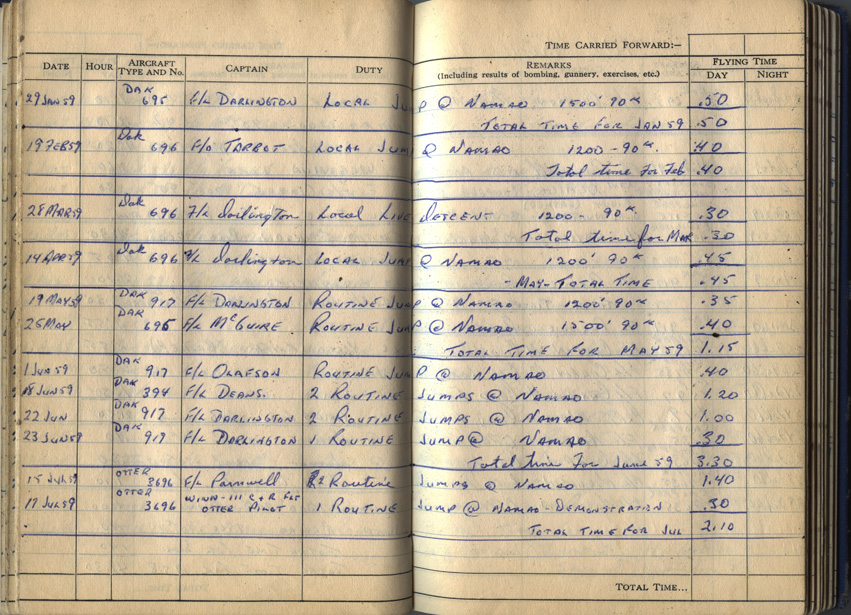 TIME CARRIED FORWARD:—
DATE HOUR AIRCRAFT TYPE AND No. CAPTAIN DUTY REMARKS (Including results of bombing, gunnery, exercises, etc.) FLYING TIME DAY NIGHT
29 JAN 59 DAK 695 F/L DARLINGTON LOCAL JUMP @ NAMAO 1500' 90K .50
TOTAL TIME FOR JAN 59 .50
19 FEB 59 Dak 696 F/O TARBOT LOCAL JUMP @ NAMAO 1200 - 90K. .40
Total time For Feb .40
28 MAR 59 Dak 696 F/L Darlington Local Live DESCENT 1200 - 90K .30
Total time for MAR .30
14 APR 59 Dak 696 F/L Darlington LOCAL JUMP @ NAMAO 1200' 90K .45
- MAY - TOTAL TIME .45
19 MAY 59 DAK 917 F/L DARLINGTON ROUTINE JUMP @ NAMAO 1200' 90K .35
26 MAY DAK 695 F/L McGUIRE. ROUTINE JUMP @ NAMAO 1500' 90K .40
TOTAL TIME FOR MAY 59 1.15
1 JUN 59 DAK 917 F/L OLAFSON ROUTINE JUMP @ NAMAO .40
18 JUN 59 DAK 394 F/L DEANS. 2 ROUTINE JUMPS @ NAMAO 1.20
22 JUN DAK 917 F/L DARLINGTON 2 ROUTINE JUMPS @ NAMAO 1.00
23 JUN 59 DAK 917 F/L DARLINGTON 1 ROUTINE JUMP @ NAMAO .30
Total time For June 59 3.30
15 JUL 59 OTTER 3696 F/L Pannwell 2 Routine JUMPS @ NAMAO 1.40
17 JUL 59 OTTER 3696 111 C+R OTTER PILOT 1 ROUTINE JUMP @ NAMAO - DEMONSTRATION .30
TOTAL TIME FOR JUL 2.10
TOTAL TIME...